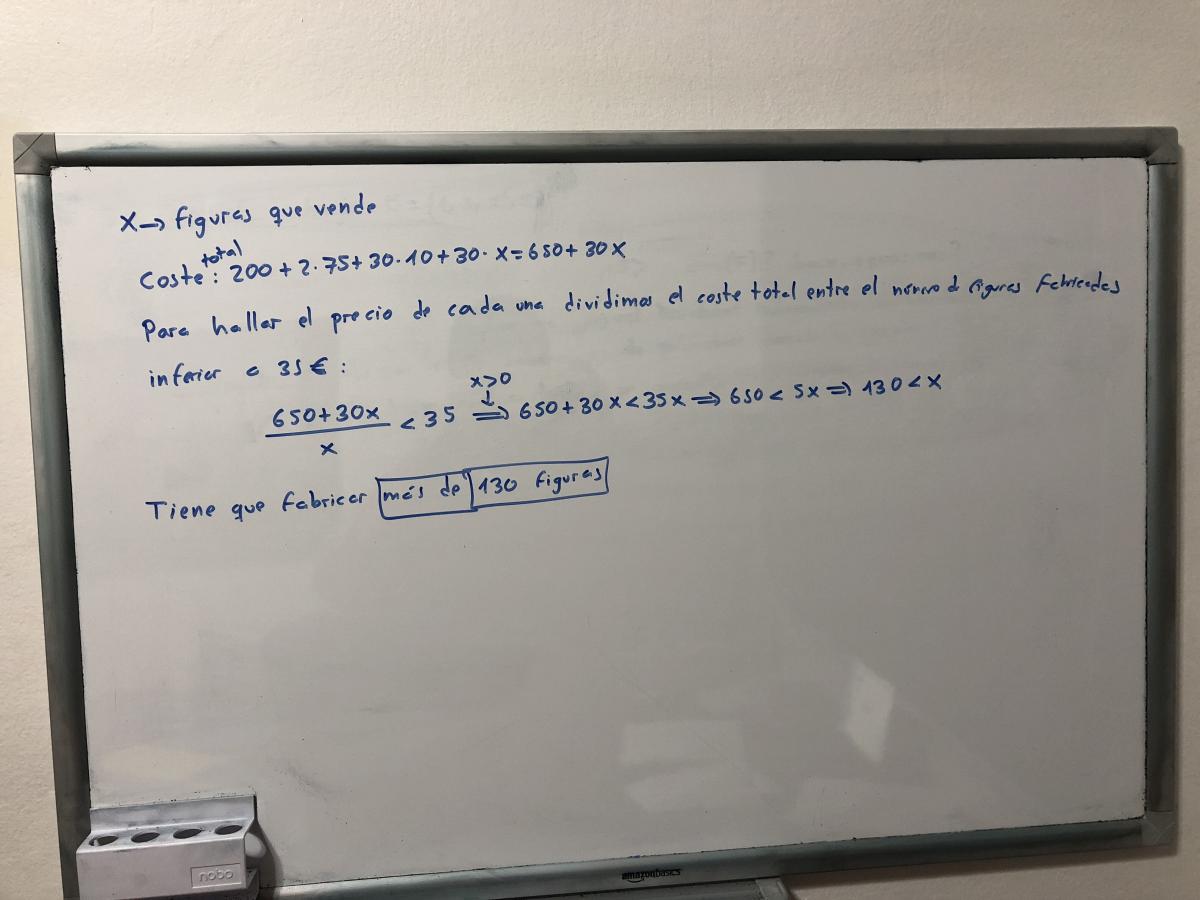 x → figuras que vende
total
Coste: 200 + 2·75 + 30·10 + 30·x = 650 + 30x
Para hallar el precio de cada una dividimos el coste total entre el número d figuras fabricadas
inferior a 35 € :
x>0
↓
650+30x / x < 35 ⟹ 650+30x < 35x ⟹ 650 < 5x ⟹ 130 < x
Tiene que fabricar más de 130 figuras
nobo
amazonbasics